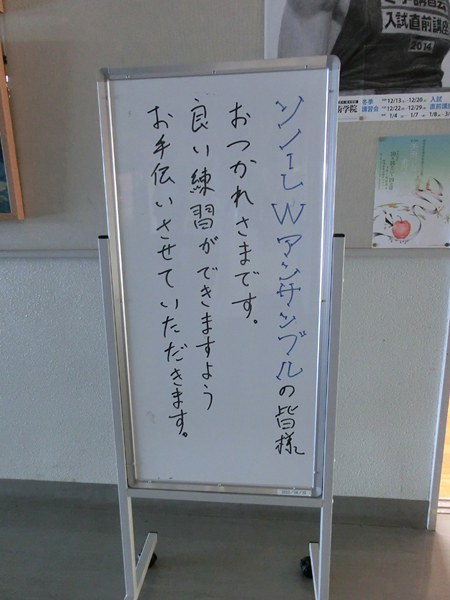 ソノーレWアンサンブルの皆様
おつかれさまです。
良い練習ができますよう
お手伝いさせていただきます。
入試直前講座
2014
冬季
講習会
12/13
12/20
12/22
12/29
1/4
1/7
入試
直前講